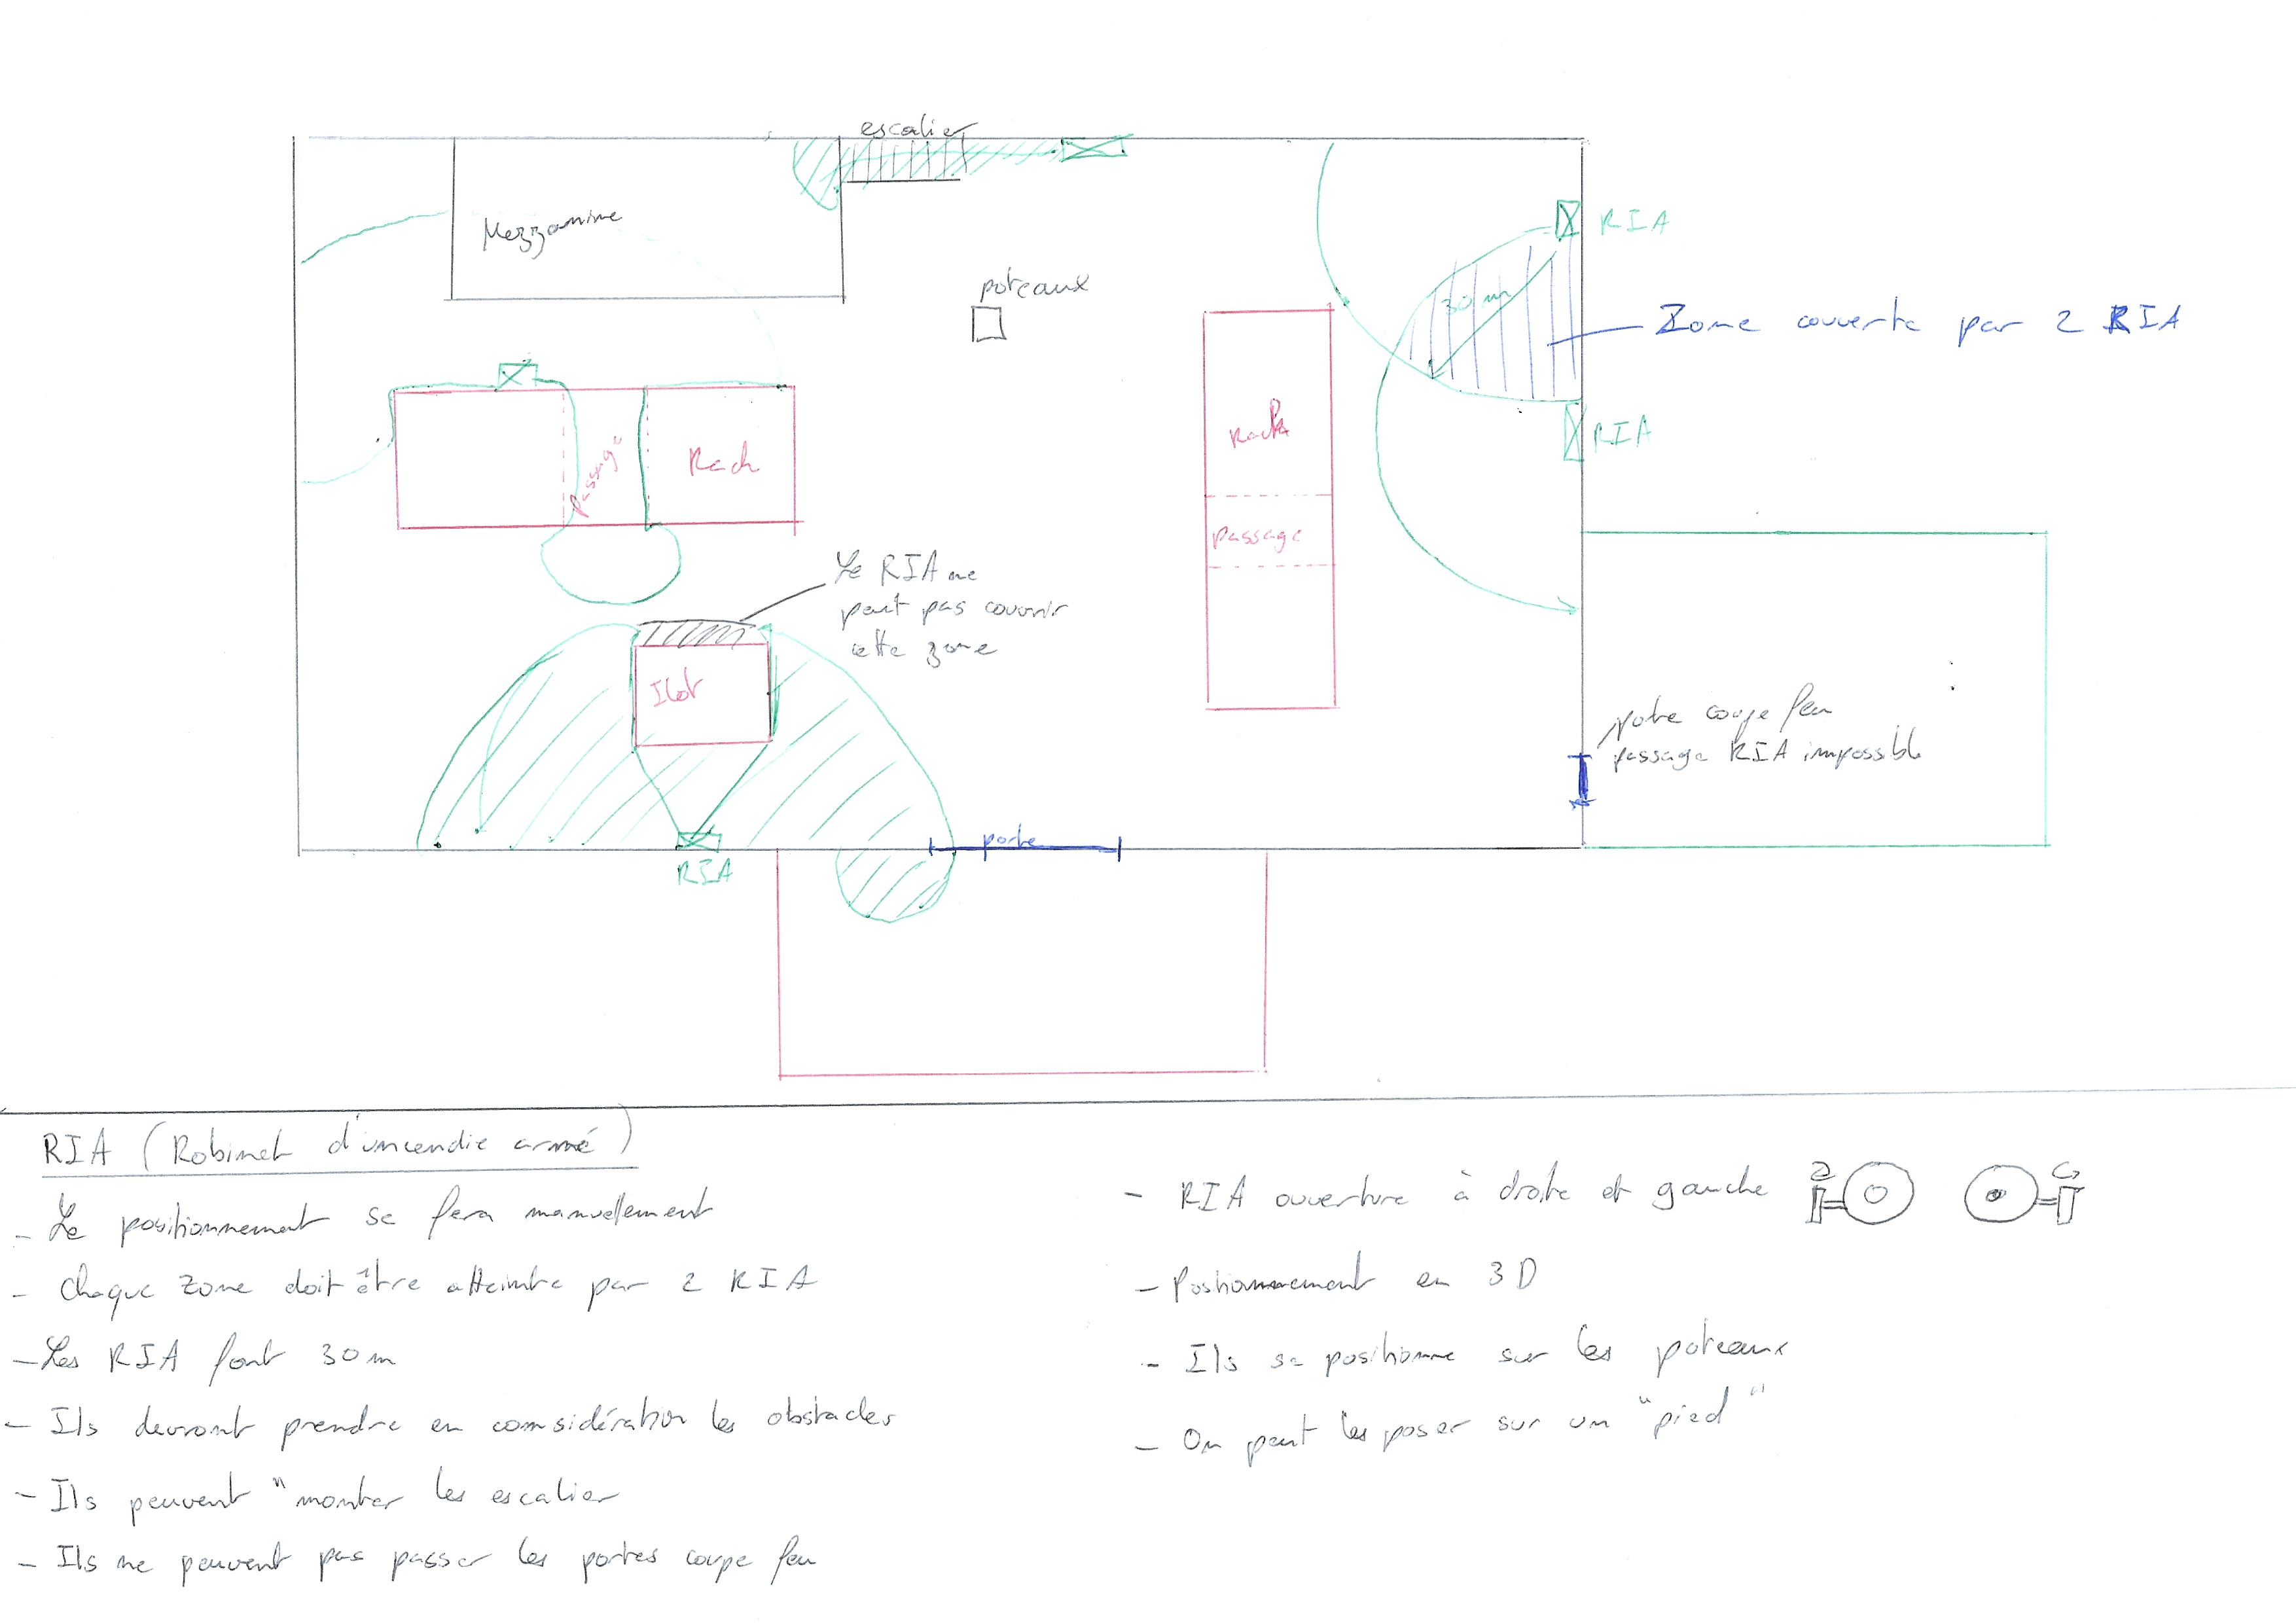 escalier
Mezzanine
poteaux
RIA
30 m
Zone couverte par 2 RIA
RIA
Rack
Passage
Rack
passage
Le RIA ne
peut pas couvrir
cette zone
Ilot
porte coupe feu
passage RIA impossible
porte
RIA
RIA (Robinet d'incendie armé)
- Le positionnement se fera manuellement
- Chaque zone doit être atteinte par 2 RIA
- Les RIA font 30m
- Ils devront prendre en considération les obstacles
- Ils peuvent "monter les escalier
- Ils ne peuvent pas passer les portes coupe feu
- RIA ouverture à droite et gauche D G
- Positionnement en 3D
- Ils se positionne sur les poteaux
- On peut les poser sur un "pied"